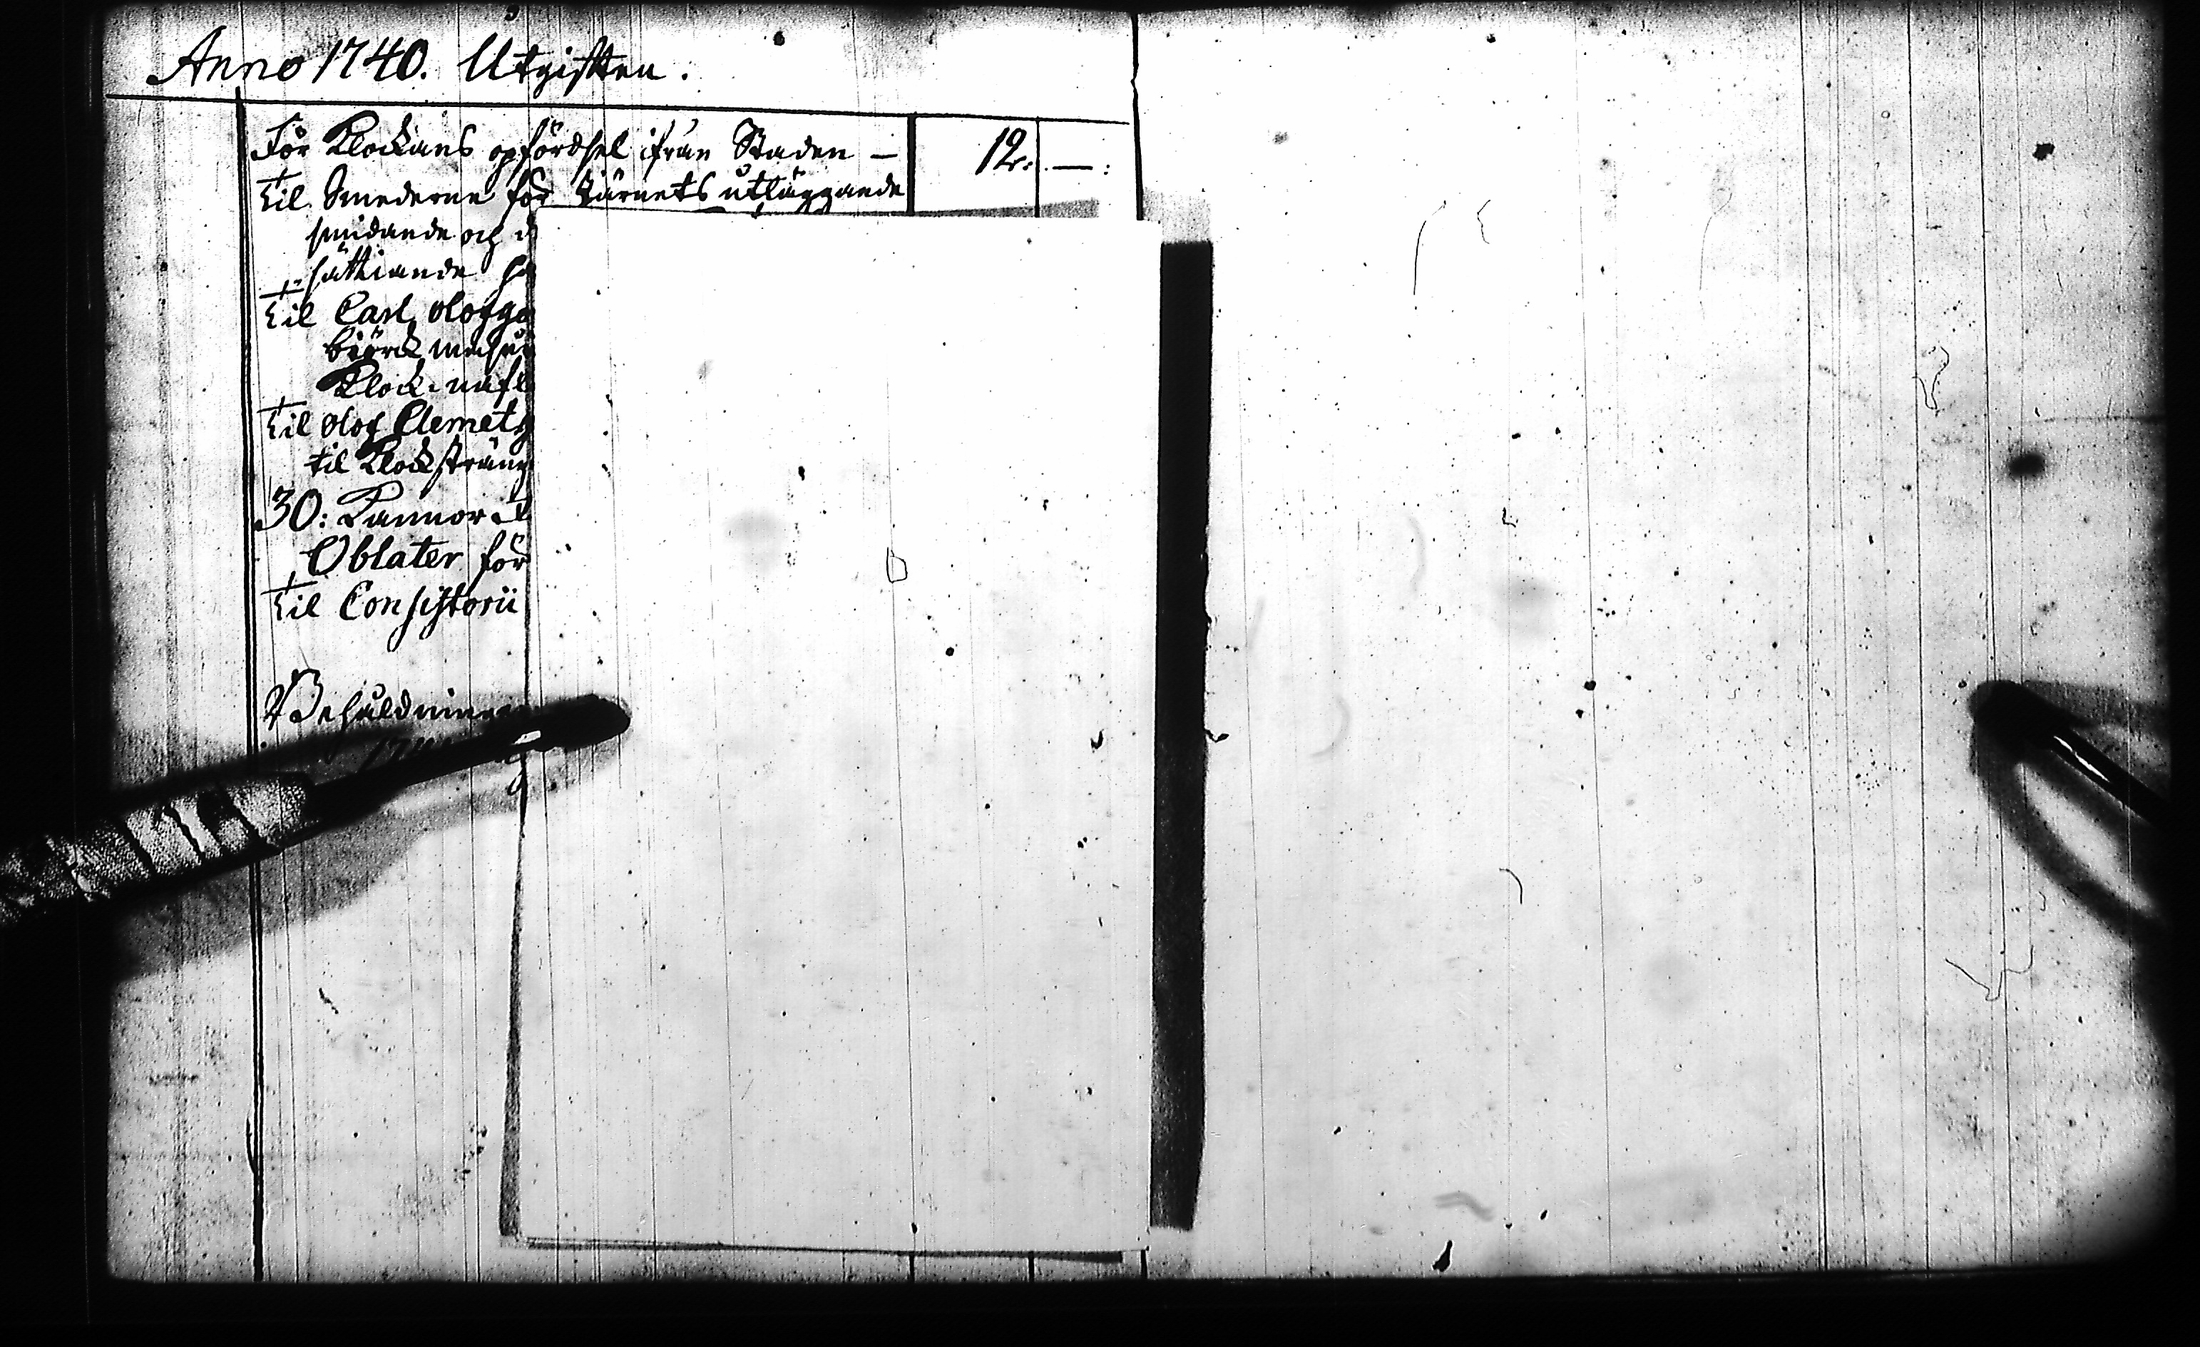 Anno 1740. Utgiften.
För Klockans opfördsel ifrån Staden — 12: —:
Til Smederne för Järnets utläggande
smidande och
sättiande
Til Carl Olofz
Björck
Klock
Til Olof Clemetz
til Klocksträng
30: Kannor
Oblater för
Til Consistorii
Behåldningen